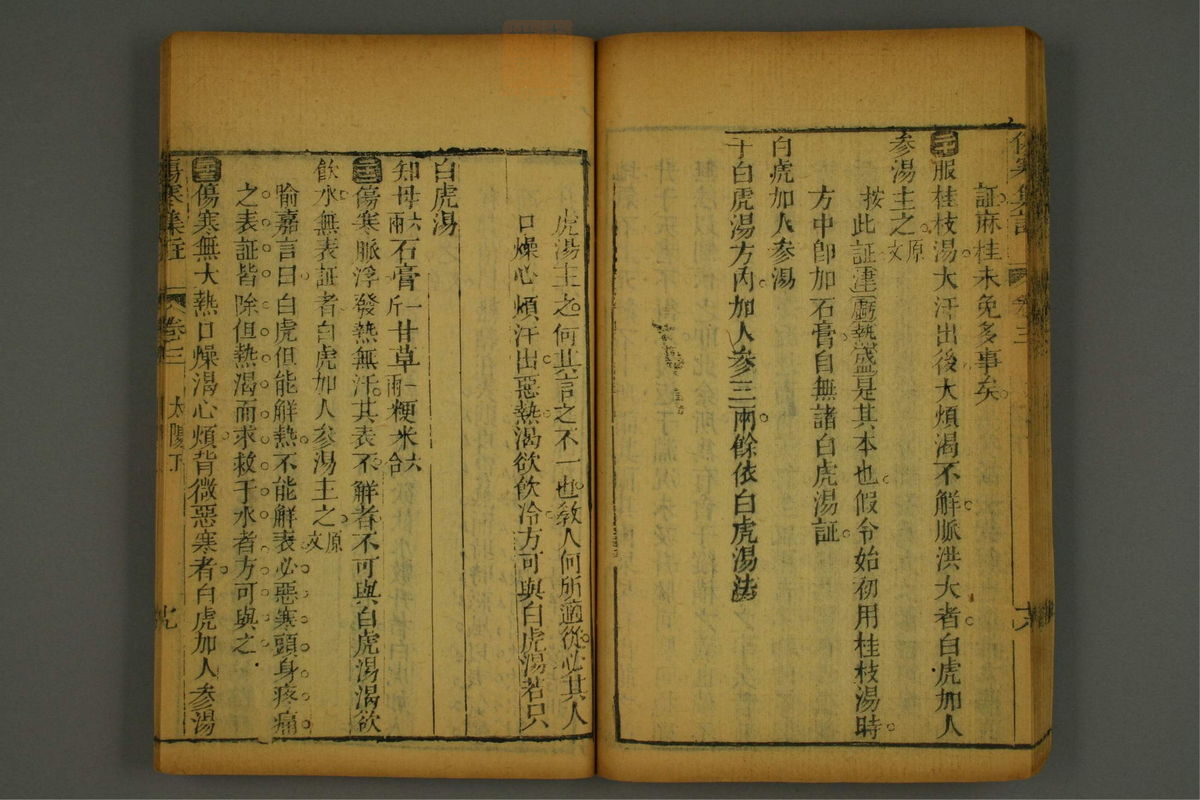 証麻桂未免多事矣
服桂枝湯大汗出後大煩渴不解脈洪大者白虎加人
參湯主之原文
按此証津熱盛是其本也假令始初用桂枝湯時
方中卽加石膏自無諸白虎湯証
白虎加人參湯
于白虎湯方內加人參三兩餘依白虎湯法
虎湯主之何其言之不一也敎人何所適從必其人
口燥心煩汗出惡熱渴欲飲冷方可與白虎湯若只
白虎湯
知母六兩石膏一斤甘草一兩粳米六合
傷寒脈浮發熱無汗其表不解者不可與白虎湯渴欲
飲水無表証者白虎加人參湯主之原文
喻嘉言曰白虎但能解熱不能解表必惡寒頭身疼痛
之表証皆除但熱渴而求救于水者方可與之
傷寒無大熱口燥渴心煩背微惡寒者白虎加人參湯
傷寒集註 卷三 太陽下